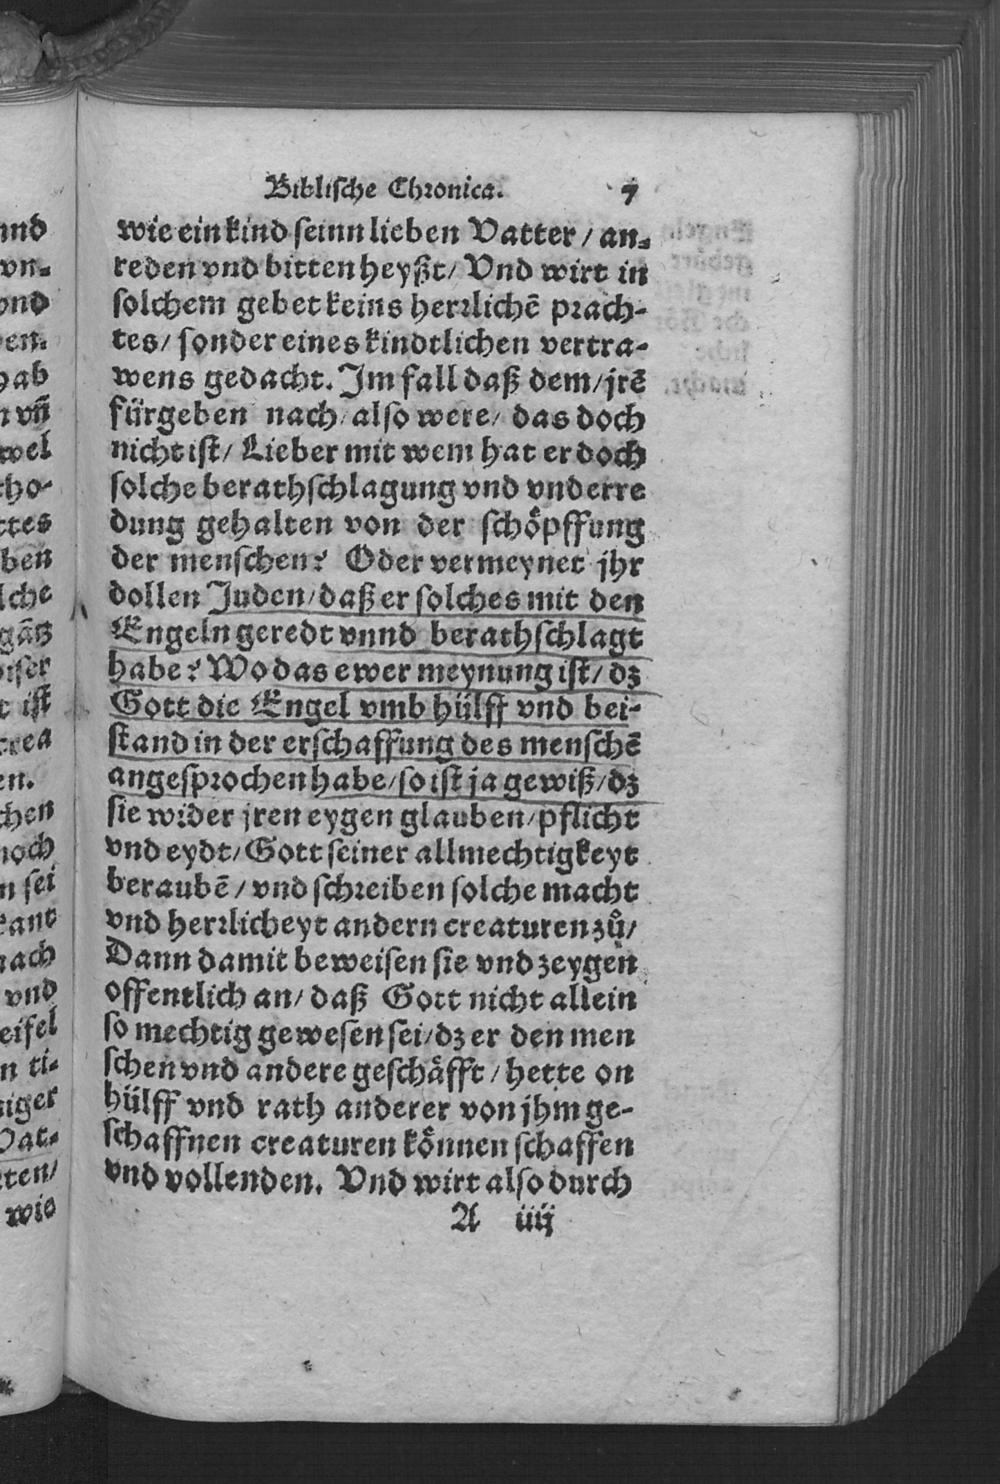 Biblische Chronica. 7
wie ein kind seinn lieben Vatter / an-
reden vnd bitten heyßt / Vnd wirt in
solchem gebet keins herrlichē prach-
tes / sonder eines kindtlichen vertra-
wens gedacht. Im fall daß dem / jrē
fürgeben nach / also were / das doch
nicht ist / Lieber mit wem hat er doch
solche berathschlagung vnd vnderre
dung gehalten von der schöpffung
der menschen? Oder vermeynet jhr
dollen Juden / daß er solches mit den
Engeln geredt vnnd berathschlagt
habe? Wo das ewer meynung ist / dz
Gott die Engel vmb hülff vnd bei-
stand in der erschaffung des menschē
angesprochen habe / so ist ja gewiß / dz
sie wider jren eygen glauben / pflicht
vnd eydt / Gott seiner allmechtigkeyt
beraubē / vnd schreiben solche macht
vnd herrlicheyt andern creaturen zů /
Dann damit beweisen sie vnd zeygen
offentlich an / daß Gott nicht allein
so mechtig gewesen sei / dz er den men
schen vnd andere geschäfft / hette on
hülff vnd rath anderer von jhm ge-
schaffnen creaturen können schaffen
vnd vollenden. Vnd wirt also durch
A iiij